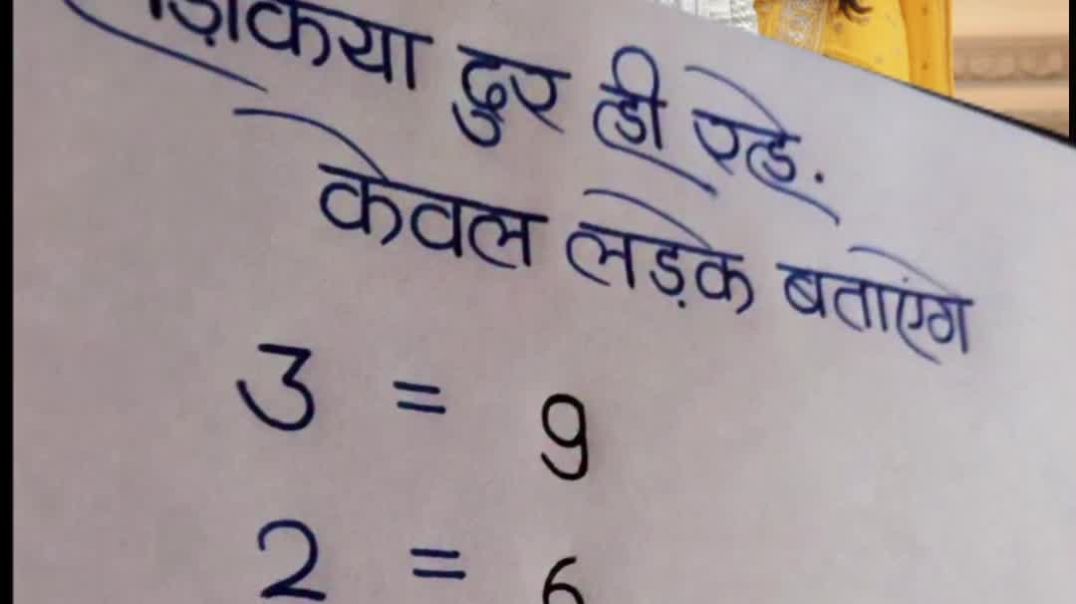 लड़किया दुर ही रहे.
केवल लड़के बताएंगे
3 = 9
2 = 6